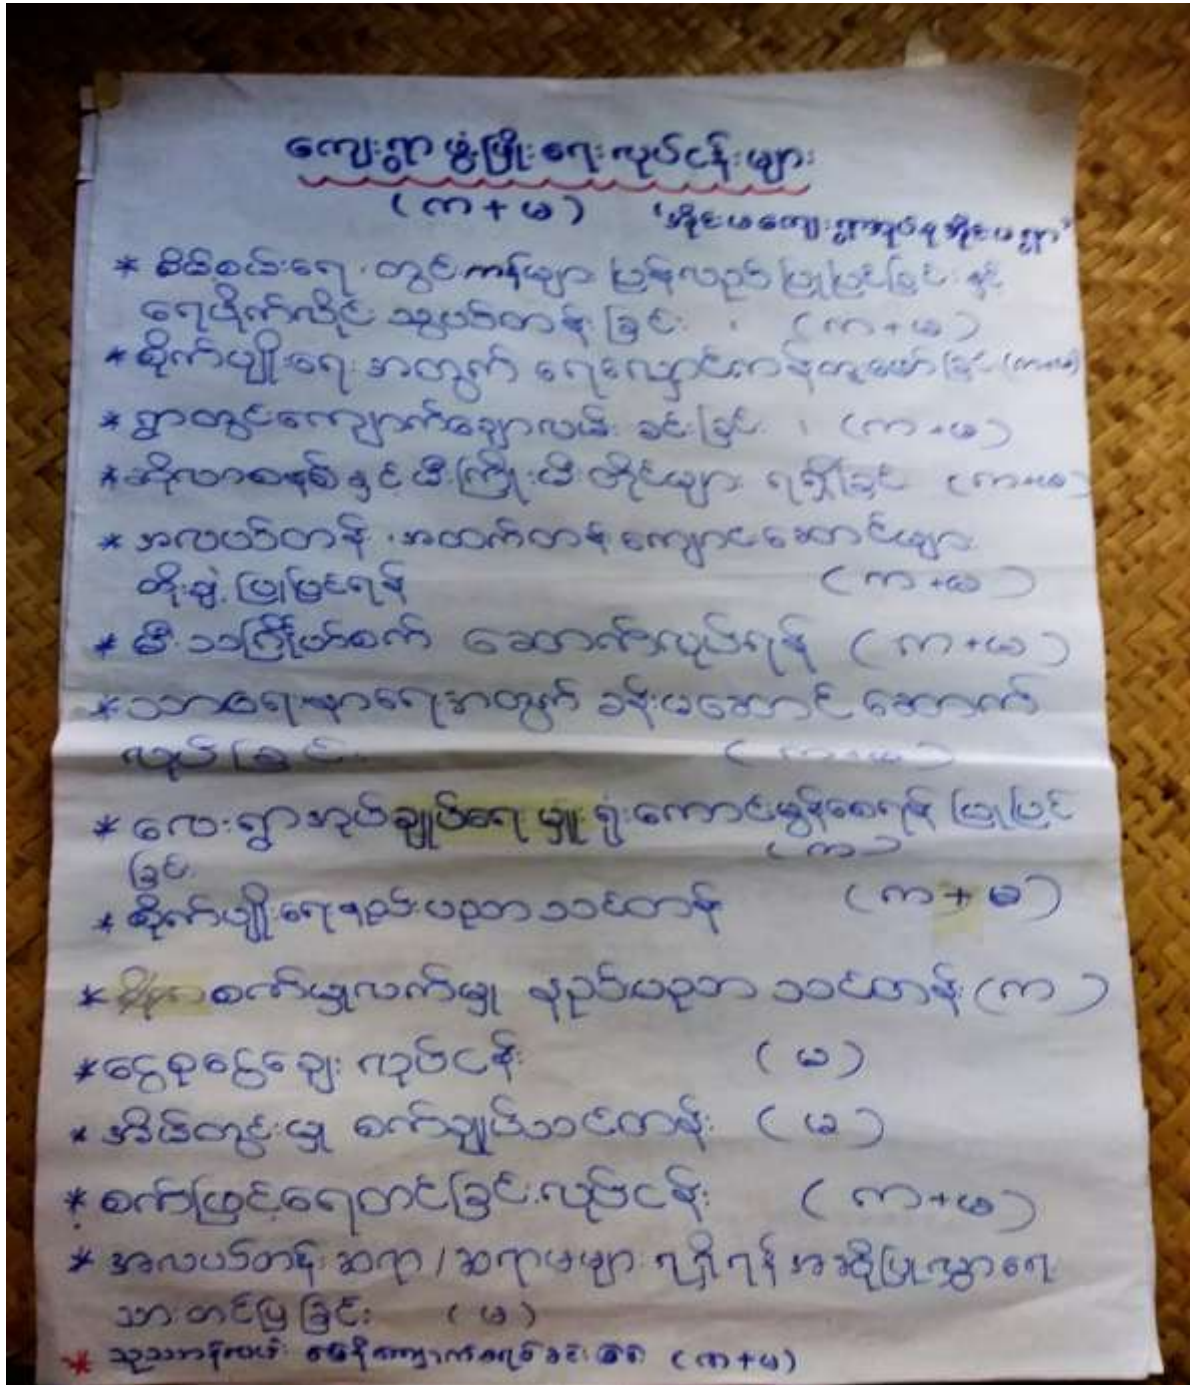 ကျေးရွာ ဖွံ့ဖြိုးရေးလုပ်ငန်းများ
(က + မ) "အိုင်းမကျေးရွာအုပ်စု အိုင်းမရွာ"
* စိမ့်စမ်းရေ၊ တွင်းကန်များ ပြန်လည် ပြုပြင်ခြင်း နှင့်
ရေပိုက်လိုင်း သွယ်တန်းခြင်း ၊ (က + မ)
* စိုက်ပျိုးရေးအတွက် ရေလှောင်ကန်တူးဖော်ခြင်း (က+မ)
* ရွာတွင်းကျောက်ချောလမ်း ခင်းခြင်း ၊ (က + မ)
* ဆိုလာစနစ်နှင့် မီးကြိုး မီးတိုင်များ ရရှိခြင်း (က+မ)
* အလယ်တန်း ၊ အထက်တန်း ကျောင်းဆောင်များ
တိုးချဲ့ ပြုပြင်ရန် (က + မ)
* မီးသင်္ဂြိုဟ်စက် ဆောက်လုပ်ရန် (က + မ)
* သာရေးနာရေးအတွက် ခန်းမဆောင် ဆောက်
လုပ်ခြင်း (က+မ)
* ကျေးရွာအုပ်ချုပ်ရေးမှူးရုံးကောင်းမွန်စေရန် ပြုပြင်
ခြင်း (က)
* စိုက်ပျိုးရေးနည်းပညာ သင်တန်း (က + မ)
* စက်မှုလက်မှု နည်ပညာ သင်တန်း (က)
* ငွေစုငွေချေး လုပ်ငန်း (မ)
* အိမ်တွင်းမှု စက်ချုပ်သင်တန်း (မ)
* စက်ဖြင့်ရေတင်ခြင်းလုပ်ငန်း (က + မ)
* အလယ်တန်း ဆရာ / ဆရာမများ ရရှိရန် အဆိုပြုလွှာရေး
သားတင်ပြခြင်း (မ)
* သုသာန်လမ်း ကျောက်ခင်း (က+မ)